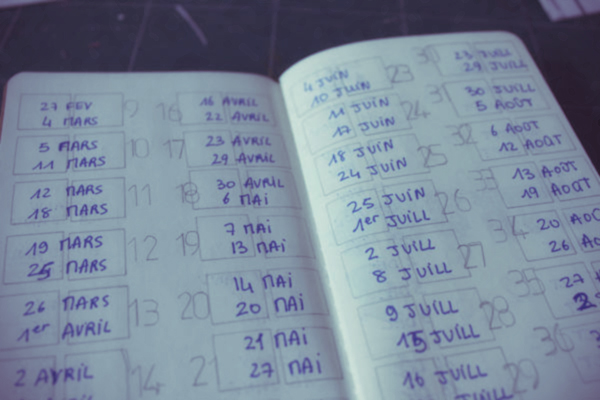 27 FEV
4 MARS
9
5 MARS
11 MARS
10
12 MARS
18 MARS
11
19 MARS
25 MARS
12
26 MARS
1er AVRIL
13
2 AVRIL
14
16
16 AVRIL
22 AVRIL
17
23 AVRIL
29 AVRIL
18
30 AVRIL
6 MAI
19
7 MAI
13 MAI
20
14 MAI
20 MAI
21
21 MAI
27 MAI
4 JUIN
10 JUIN
23
11 JUIN
17 JUIN
24
18 JUIN
24 JUIN
25
25 JUIN
1er JUILL
26
2 JUILL
8 JUILL
27
9 JUILL
15 JUILL
28
16 JUILL
JUILL
29
30
23 JUILL
29 JUILL
31
30 JUILL
5 AOÛT
32
6 AOÛT
12 AOÛT
33
13 AOÛT
19 AOÛT
34
20 AOÛ
26 AO
35
27 A
2
36